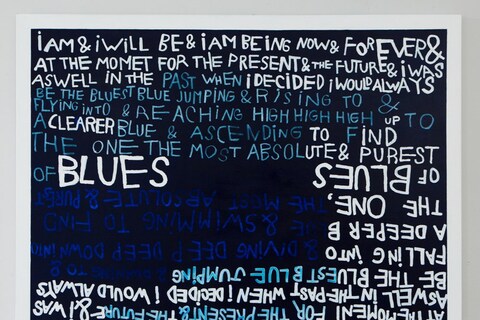 iAM & iWiLL BE & iAM BEiNG NOW & FOREVER &
AT THE MOMET FOR THE PRESENT & THE FUTURE & iWAS
ASWELL IN THE PAST WHEN iDECiDED iWOULD ALWAYS
BE THE BLUEST BLUE JUMPiNG & RiSiNG TO &
FLYiNG iNTO & REACHiNG HIGH HIGH HIGH UP TO
A CLEARER BLUE & ASCENDiNG TO FiND
THE ONE THE MOST ABSOLUTE & PUREST
OF BLUES
OF BLUES
THE MOST ABSOLUTE & PUREST
THE ONE,
& SWiMMiNG TO FIND
A DEEPER B
& DiViNG DEEP DOWN iNTO
FALLiNG iNTO
BE THE BLUEST BLUE JUMPiNG
ASWELL iN THE PAST WHEN iDECiDED i WOULD ALWAYS
AT THE MOMENT FOR THE PRESENT & THE FUTURE & iWAS